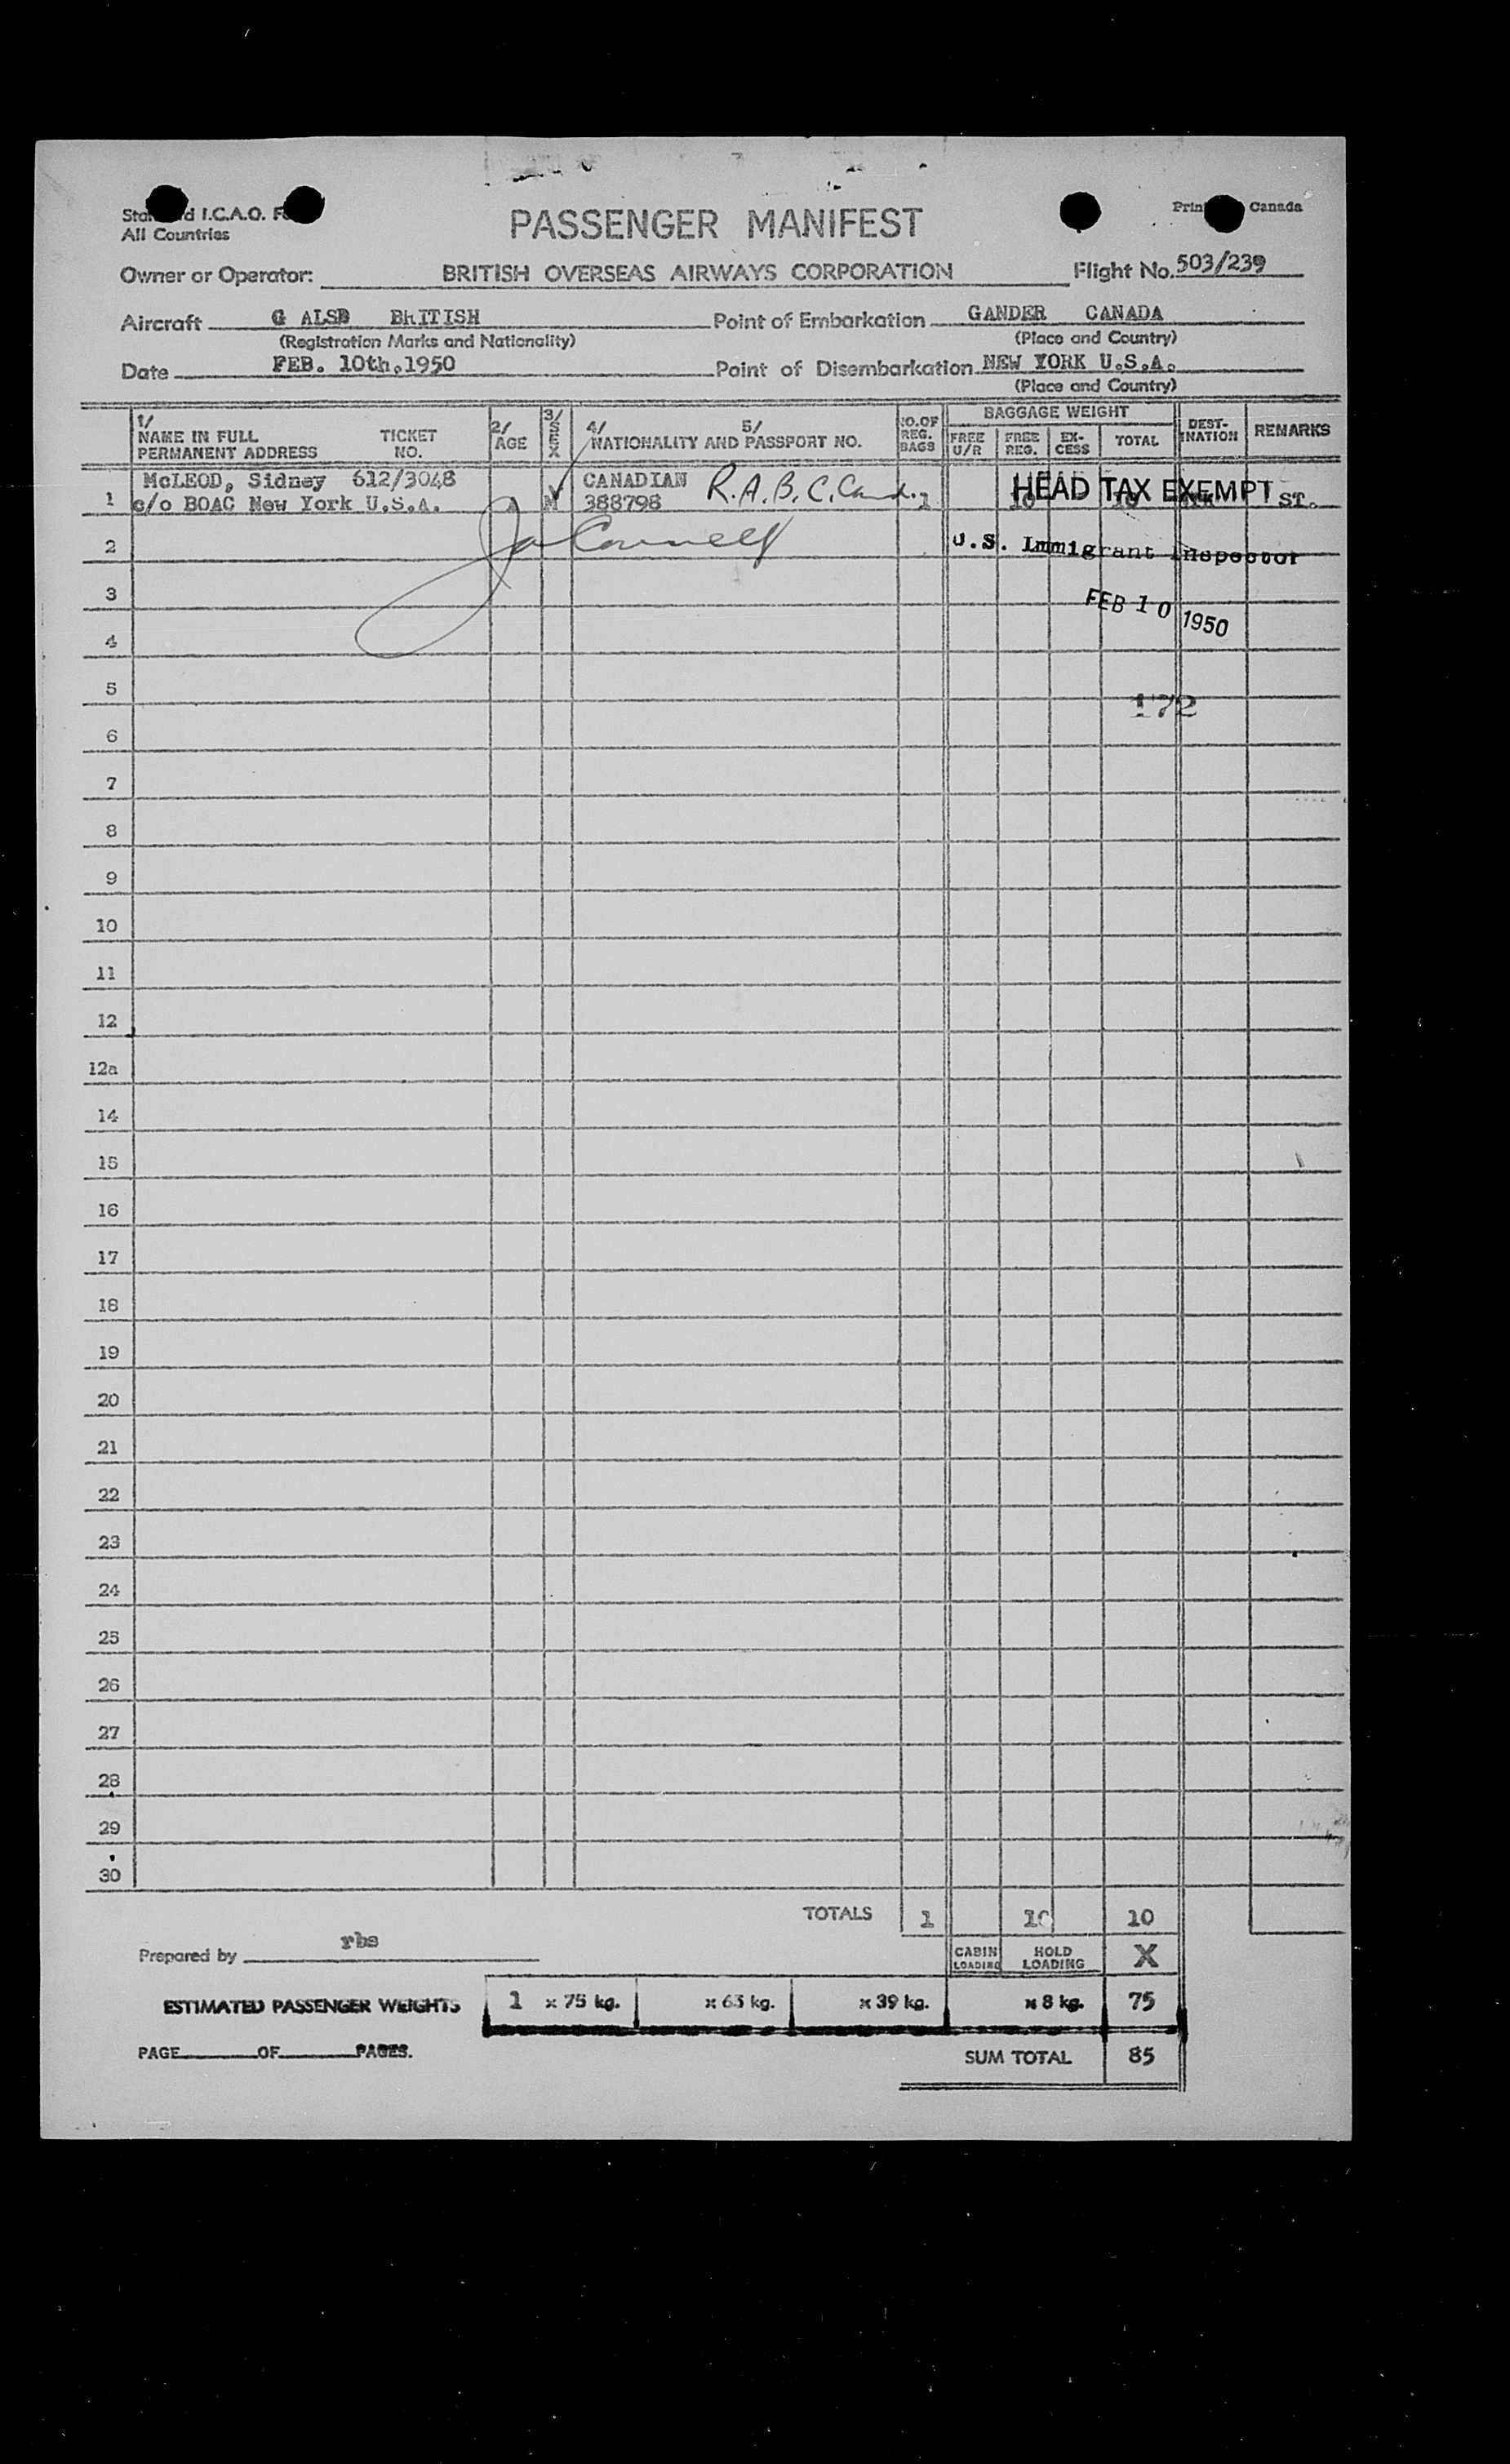 Standard I.C.A.O. Fo
All Countries
PASSENGER MANIFEST
Prin Canada
Owner or Operator: BRITISH OVERSEAS AIRWAYS CORPORATION Flight No. 503/239
Aircraft G ALSD BRITISH Point of Embarkation GANDER CANADA
(Registration Marks and Nationality) (Place and Country)
Date FEB. 10th.1950 Point of Disembarkation NEW YORK U.S.A.
(Place and Country)
1/ NAME IN FULL PERMANENT ADDRESS TICKET NO. 2/ AGE 3/ SEX 4/ 5/ NATIONALITY AND PASSPORT NO. NO. OF REG. BAGS BAGGAGE WEIGHT FREE U/R FREE REG. EX-CESS TOTAL DEST-INATION REMARKS
McLEOD, Sidney 612/3048 CANADIAN R.A.B.C. Card. HEAD TAX EXEMPT
1 c/o BOAC New York U.S.A. A M 388798 1 10 10 ST.
2 U.S. Immigrant Inspector
3 FEB 10 1950
4
5 172
6
7
8
9
10
11
12
12a
14
15
16
17
18
19
20
21
22
23
24
25
26
27
28
29
30
TOTALS 1 10 10
Prepared by rbs CABIN LOADING HOLD LOADING X
ESTIMATED PASSENGER WEIGHTS 1 x 75 kg. x 63 kg. x 39 kg. x 8 kg. 75
PAGE OF PAGES. SUM TOTAL 85